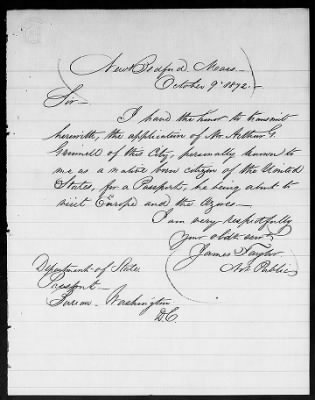 New Bedford Mass—
October 9th 1872.—
Sir—
I have the honor to transmit
herewith, the application of Mr. Arthur G.
Grinnell of this City, personally known to
me as a native born citizen of the United
States, for a Passport, he being about to
visit Europe and the Azores—
I am very respectfully
your obdt servt,
James Taylor
Not. Public
Department of State.
Passport
Bureau— Washington
D.C.